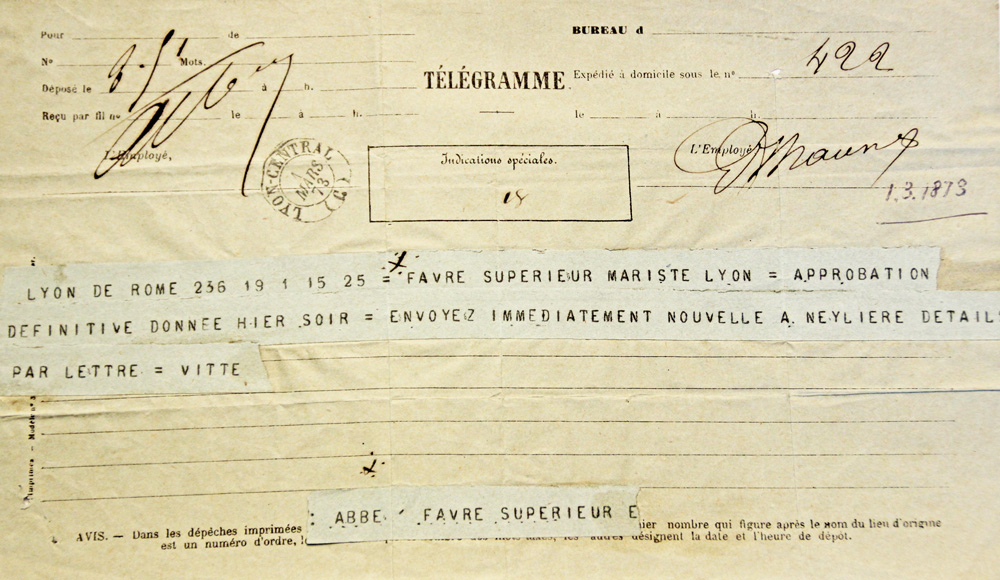 Pour de
BUREAU d
N° Mots.
422
TÉLÉGRAMME
Expédié à domicile sous le n°
Déposé le à h.
Reçu par fil n° le à h.
le à h.
L'Employé,
L'Employé
LYON-CENTRAL
1
MARS
73
Indications spéciales.
18
1.3.1873
LYON DE ROME 236 19 1 15 25 = FAVRE SUPERIEUR MARISTE LYON = APPROBATION
DEFINITIVE DONNEE HIER SOIR = ENVOYEZ IMMEDIATEMENT NOUVELLE A NEYLIERE DETAILS
PAR LETTRE = VITTE
: ABBE FAVRE SUPERIEUR E
AVIS. — Dans les dépêches imprimées
nier nombre qui figure après le nom du lieu d'origine
est un numéro d'ordre,
désignent la date et l'heure de dépôt.